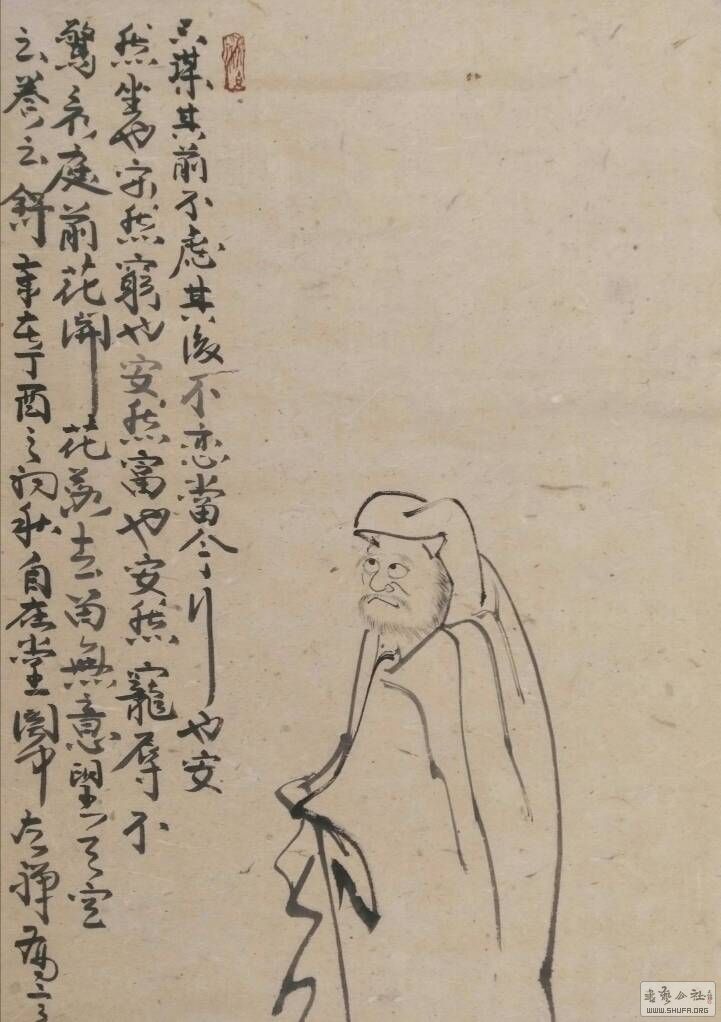 不謀其前不慮其後不戀當今行也安
然坐也安然窮也安然富也安然寵辱不
驚看庭前花開花落去留無意望天空
雲卷雲舒 丁酉之初秋自在堂
WWW.SHUFA.ORG